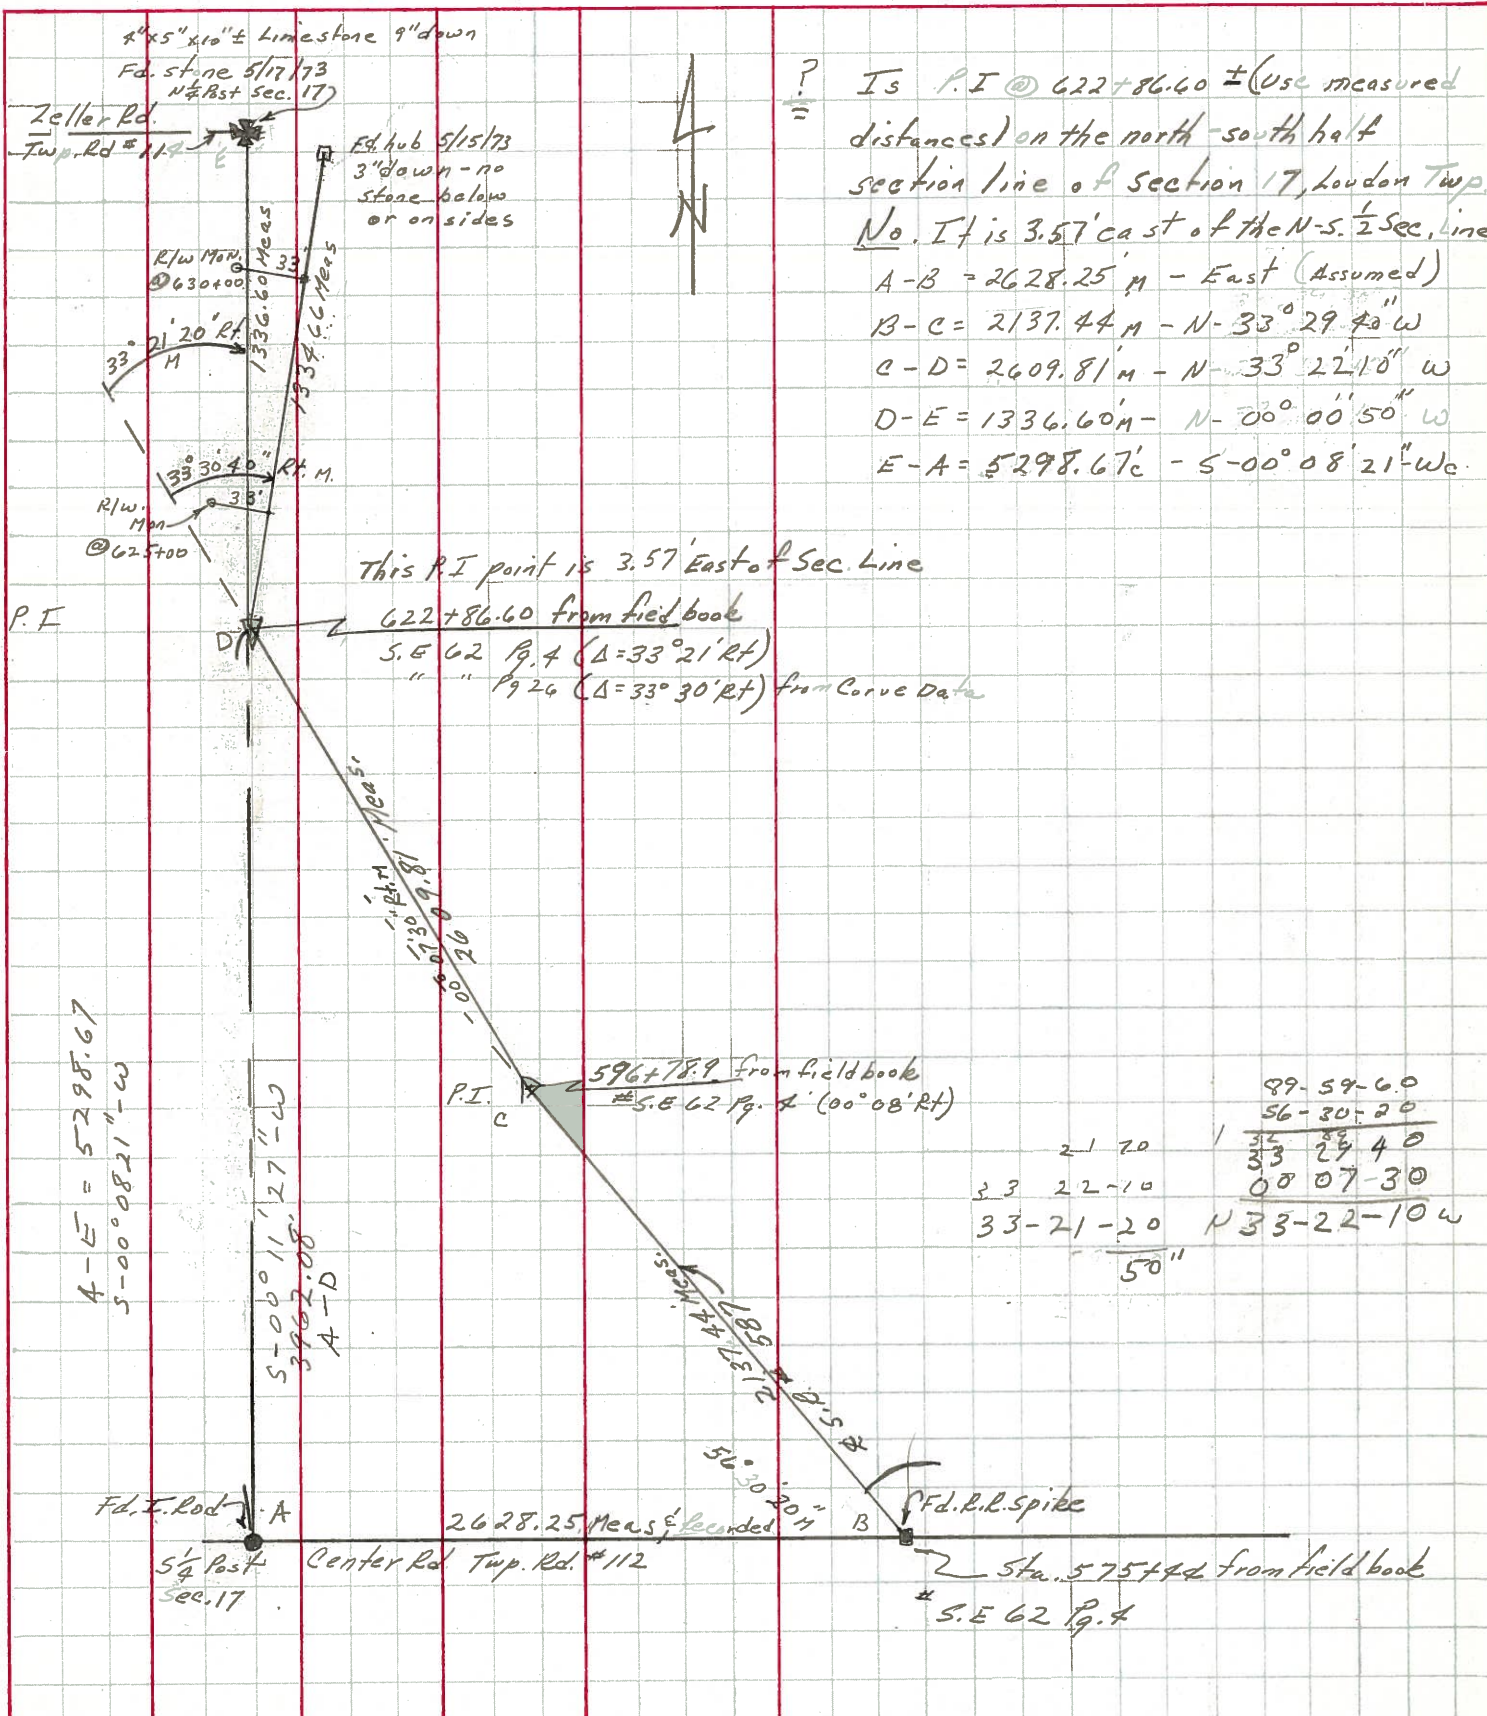 4"x5"x10"± Limestone 9" down
Fd. stone 5/17/73
N¼ Post Sec. 17
Zeller Rd.
Twp. Rd #114
E
Fd. hub 5/15/73
3" down - no
stone below
or on sides
N
R/W Mon.
@ 630+00
33'
1336.60 Meas
1334.66 Meas
33° 21' 20" Rt.
M
33° 30' 40" Rt. M.
33'
R/W.
Mon
@ 625+00
? Is P.I @ 622+86.60 ± (Use measured
distances) on the north-south half
section line of Section 17, Loudon Twp.
No. It is 3.57' east of the N-S. ½ Sec. Line
A-B = 2628.25' M - East (Assumed)
B-C = 2137.44 M - N-33° 29' 40" W
C-D = 2609.81' M - N-33° 22' 10" W
D-E = 1336.60' M - N-00° 00' 50" W
E-A = 5298.67'c - S-00° 08' 21"-Wc.
This P.I point is 3.57' East of Sec. Line
P.I
D
622+86.60 from field book
S.E 62 Pg. 4 (Δ=33° 21' Rt)
" " Pg 26 (Δ=33° 30' Rt) from Curve Data
2609.81 Meas.
00° 07' 30" Rt. M
P.I.
C
596+78.9 from field book
#S.E 62 Pg. 4 (00° 08' Rt)
A-E = 5298.67
S-00° 08 21"-W
S-00° 11' 27"-W
3962.08'
A-D
89-59-60
56-30-20
33 29 40
00 07-30
N 33-22-10 W
21 70
33 22-10
33-21-20
50"
2137.44 Meas.
56° 30' 20"
M
Fd. I. Rod
A
2628.25 Meas & Recorded
B
Fd. R.R. Spike
S¼ Post
Sec. 17
Center Rd. Twp. Rd. #112
Sta. 575+44 from field book
# S.E 62 Pg. 4